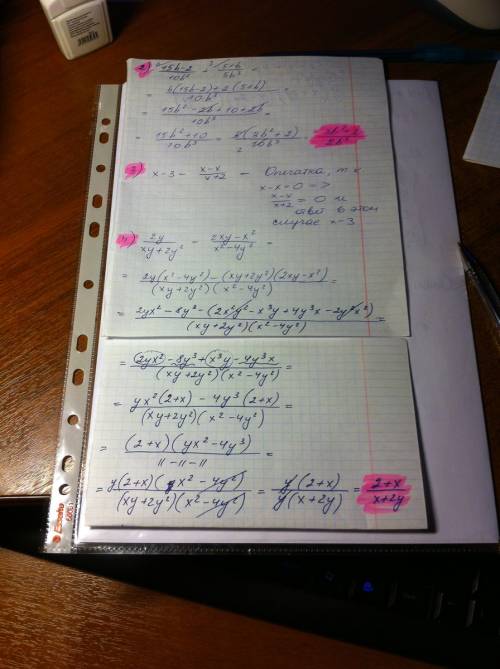 2) (15b-2)/(10b²) + (5+b)/(5b³) =
= (b(15b-2)+2(5+b))/(10b³) =
= (15b²-2b+10+2b)/(10b³) =
= (15b²+10)/(10b³) =
3) x-3 - (x-x)/(x+2) - Опечатка, т к
x-x=0 =>
(x-x)/(x+2) = 0 и
ответ в этом
случае x-3
4) (2y)/(xy+2y²) - (2xy-x²)/(x²-4y²) =
= (2y(x²-4y²)-(xy+2y²)(2xy-x²))/((xy+2y²)(x²-4y²)) =
= (2yx²-8y³-(2x²y²-x³y+4y³x-2y²x²))/((xy+2y²)(x²-4y²)) =
= (2yx²-8y³+x³y-4y³x)/((xy+2y²)(x²-4y²)) =
= (yx²(2+x)-4y³(2+x))/((xy+2y²)(x²-4y²)) =
= ((2+x)(yx²-4y³))/(11-11-11) =
= (y(2+x)(x²-4y²))/((xy+2y²)(x²-4y²)) = (y(2+x))/(y(x+2y)) = (2+x)/(x+2y)